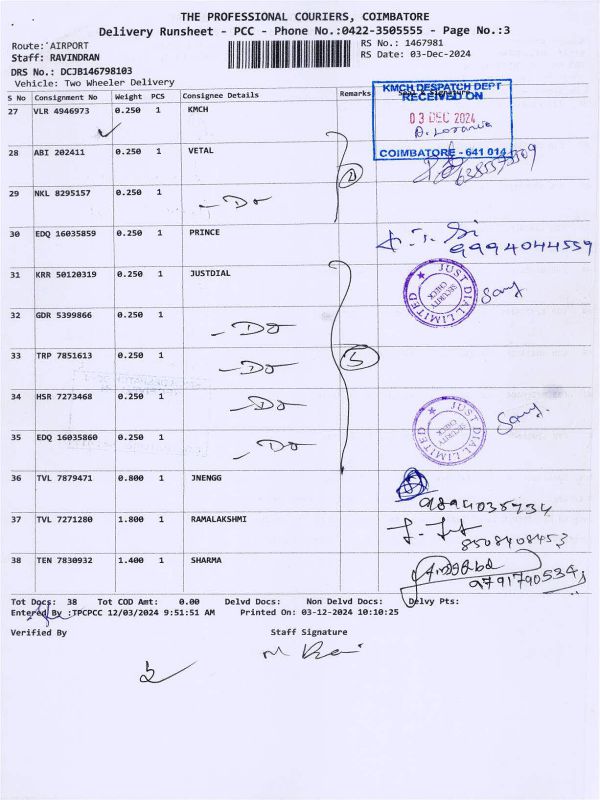 THE PROFESSIONAL COURIERS, COIMBATORE
Delivery Runsheet - PCC - Phone No.:0422-3505555 - Page No.:3
Route: AIRPORT
RS No.: 1467981
Staff: RAVINDRAN
RS Date: 03-Dec-2024
DRS No.: DCJB146798103
Vehicle: Two Wheeler Delivery
S No Consignment No Weight PCS Consignee Details Remarks
KMCH DESPATCH DEPT
RECEIVED ON
03 DEC 2024
COIMBATORE - 641 014
27 VLR 4946973 0.250 1 KMCH
28 ABI 202411 0.250 1 VETAL
29 NKL 8295157 0.250 1 - Do
30 EDQ 16035859 0.250 1 PRINCE
9994044559
31 KRR 50120319 0.250 1 JUSTDIAL
JUST DIAL LIMITED
SECURITY CHECK
32 GDR 5399866 0.250 1 - Do
33 TRP 7851613 0.250 1 - Do
5
34 HSR 7273468 0.250 1 - Do
JUST DIAL LIMITED
SECURITY CHECK
35 EDQ 16035860 0.250 1 - Do
36 TVL 7879471 0.800 1 JNENGG
37 TVL 7271280 1.800 1 RAMALAKSHMI
8508408453
38 TEN 7830932 1.400 1 SHARMA
9791790534
Tot Docs: 38 Tot COD Amt: 0.00 Delvd Docs: Non Delvd Docs: Delvy Pts:
Entered By :TPCPCC 12/03/2024 9:51:51 AM Printed On: 03-12-2024 10:10:25
Verified By Staff Signature